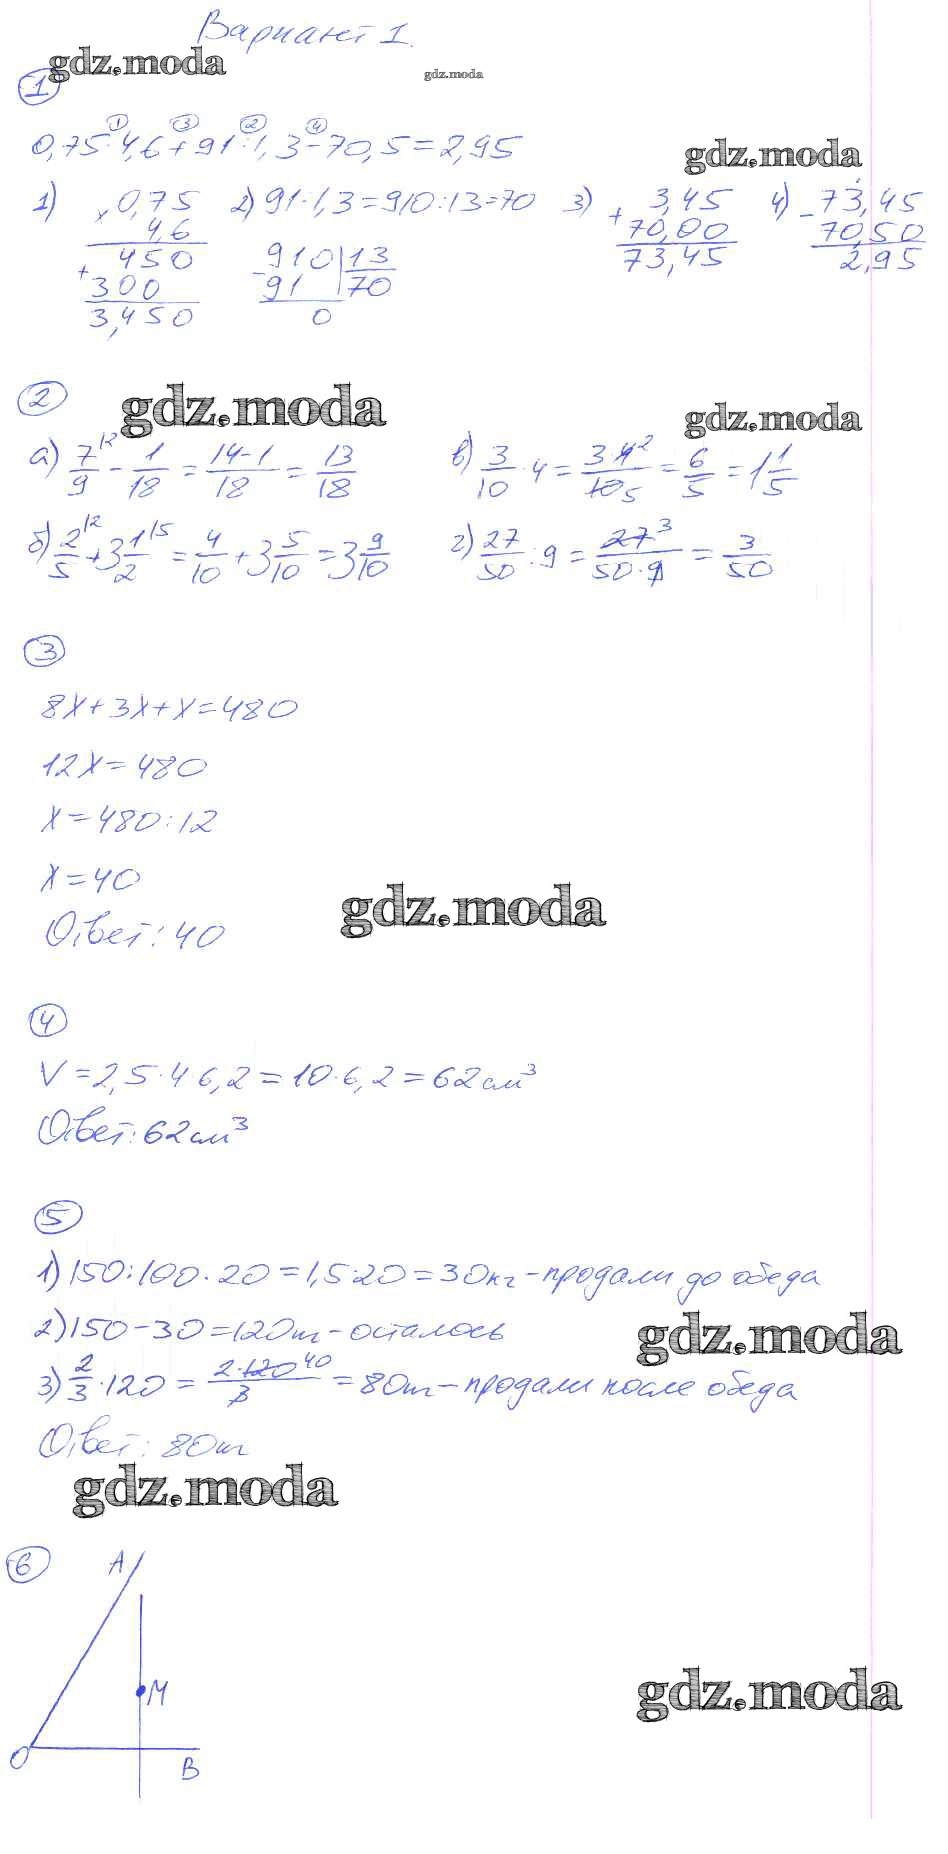 Вариант 1.
gdz.moda
gdz.moda
1
0,75 · 4,6 + 91 : 1,3 - 70,5 = 2,95
① ③ ② ④
gdz.moda
1) × 0,75 2) 91 : 1,3 = 910 : 13 = 70 3) + 3,45 4) - 73,45
4,6 70,00 70,50
+ 450 - 910 | 13 73,45 2,95
300 91 | 70
3,450 0
2
gdz.moda
gdz.moda
а) 7/9 |2 - 1/18 = 14-1/18 = 13/18 в) 3/10 · 4 = 3·4 2/10 5 = 6/5 = 1 1/5
б) 2/5 |2 + 3 1/2 |5 = 4/10 + 3 5/10 = 3 9/10 г) 27/50 : 9 = 27 3/50·9 1 = 3/50
3
8x + 3x + x = 480
12x = 480
x = 480 : 12
x = 40
gdz.moda
Ответ: 40
4
V = 2,5 · 4 6,2 = 10 · 6,2 = 62 см³
Ответ: 62 см³
5
1) 150 : 100 · 20 = 1,5 · 20 = 30 кг - продали до обеда
2) 150 - 30 = 120 кг - осталось
gdz.moda
3) 2/3 · 120 = 2·120 40/3 = 80 кг - продали после обеда
Ответ: 80 кг
gdz.moda
6
A
M
gdz.moda
O
B